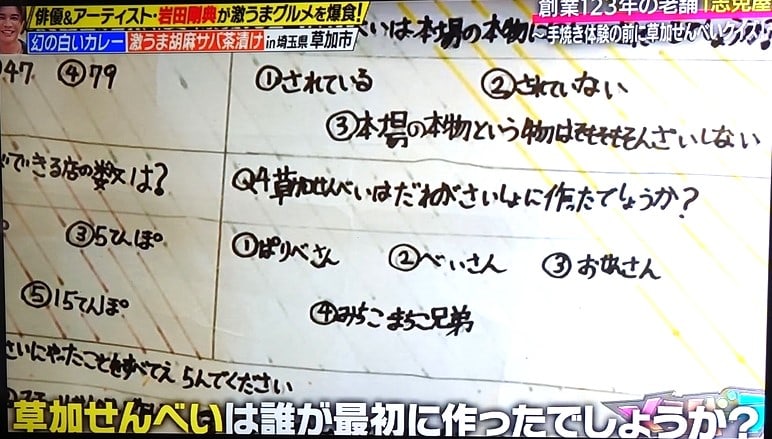 俳優&アーティスト・岩田剛典が激うまグルメを爆食!
幻の白いカレー 激うま胡麻サバ茶漬け in埼玉県 草加市
創業123年の老舗
手焼き体験の前に草加せんべいクイズ!
いは本場の本物に
47 ④79
①されている ②されていない
③本場の本物という物はそもそもそんざいしない
できる店の数は?
Q4草加せんべいはだれがさいしょに作ったでしょうか?
③5てんぽ
①ぱりべさん ②べいさん ③おせんさん
⑤15てんぽ
④みちこまちこ兄弟
さいにやったことをすべてえらんでください
草加せんべいは誰が最初に作ったでしょうか?